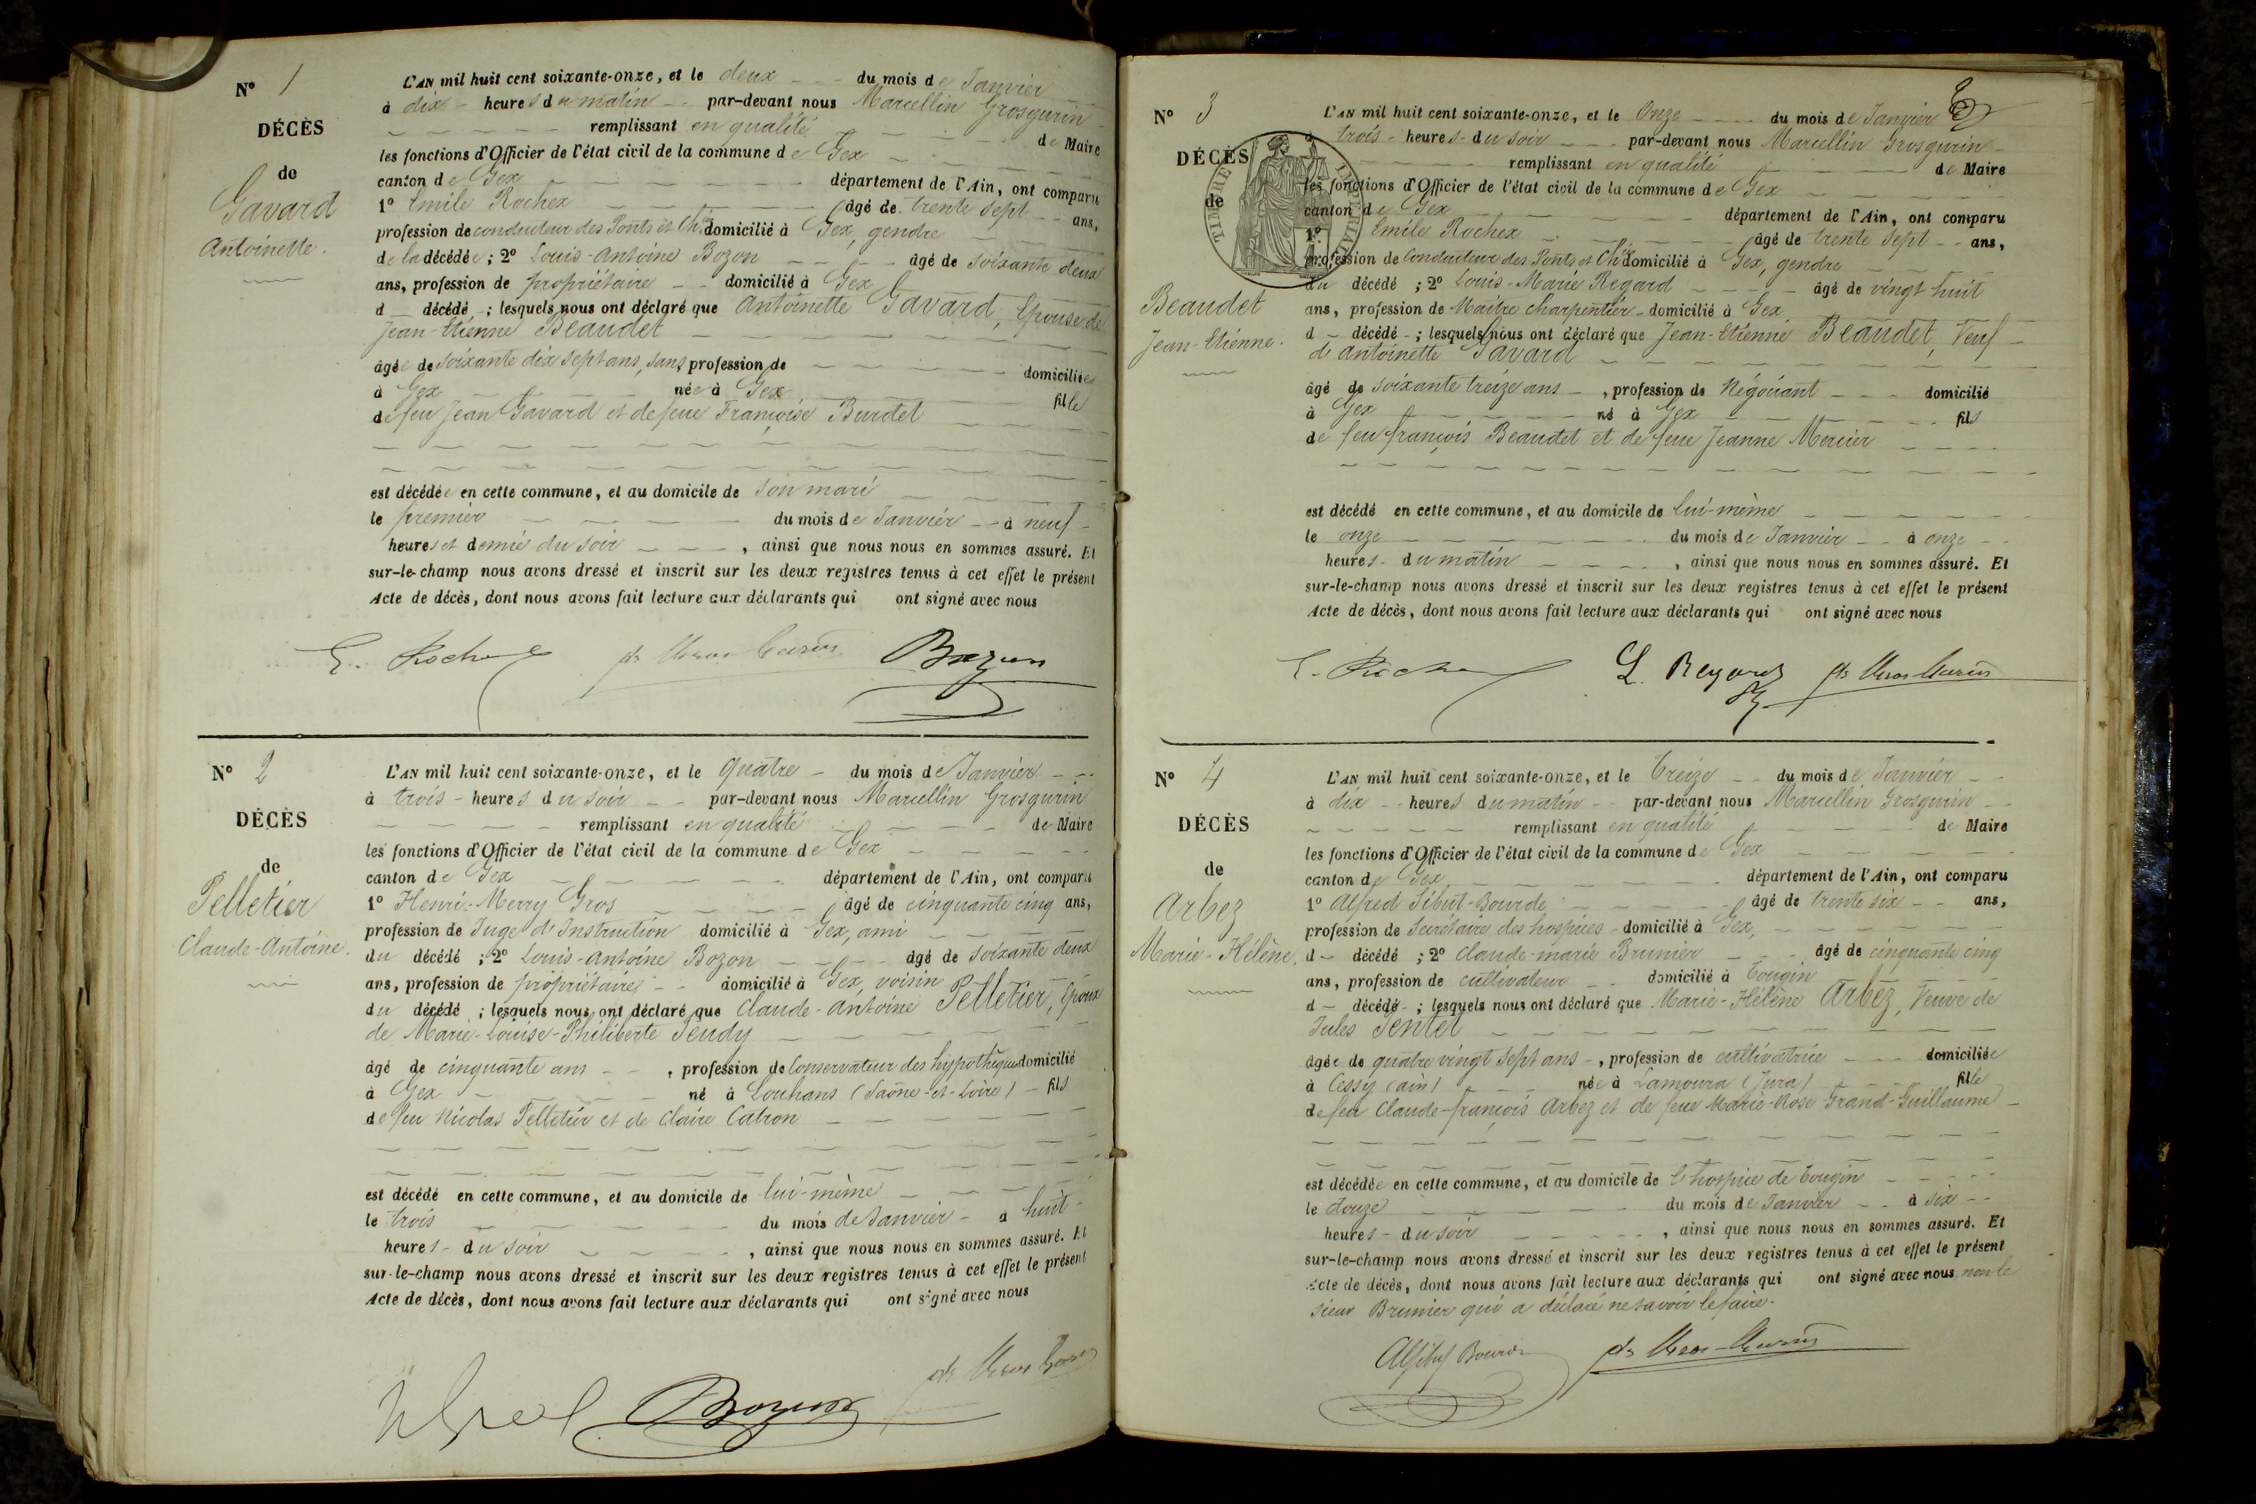 N° 1
DÉCÈS
de
Gavard
Antoinette.
L'AN mil huit cent soixante-onze, et le deux du mois de Janvier
à dix heures du matin par-devant nous Marcellin Grosgurin
remplissant en qualité de Maire
les fonctions d'Officier de l'état civil de la commune de Gex
canton de Gex département de l'Ain, ont comparu
1° Emile Rochex âgé de trente sept ans,
profession de conducteur des Ponts et Ch. domicilié à Gex, gendre
de la décédée; 2° Louis-Antoine Bozon âgé de soixante deux
ans, profession de propriétaire domicilié à Gex
d décédé ; lesquels nous ont déclaré que Antoinette Gavard, Epouse de
Jean-Etienne Beaudet
âgée de soixante dix sept ans, sans profession de domiciliée
à Gex née à Gex fille
de feu Jean Gavard et de feue Françoise Burdet
est décédée en cette commune, et au domicile de son mari
le premier du mois de Janvier à neuf
heures et demie du soir , ainsi que nous nous en sommes assuré. Et
sur-le-champ nous avons dressé et inscrit sur les deux registres tenus à cet effet le présent
Acte de décès, dont nous avons fait lecture aux déclarants qui ont signé avec nous
E. Rochex Bozon
N° 2
DÉCÈS
de
Pelletier
Claude-Antoine.
L'AN mil huit cent soixante-onze, et le quatre du mois de Janvier
à trois heures du soir par-devant nous Marcellin Grosgurin
remplissant en qualité de Maire
les fonctions d'Officier de l'état civil de la commune de Gex
canton de Gex département de l'Ain, ont comparu
1° Henri-Merry Gros âgé de cinquante cinq ans,
profession de Juge d'Instruction domicilié à Gex, ami
du décédé ; 2° Louis-Antoine Bozon âgé de soixante deux
ans, profession de propriétaire domicilié à Gex, voisin
du décédé ; lesquels nous ont déclaré que Claude-Antoine Pelletier, Epoux
de Marie-Louise-Philiberte Jeudy
âgé de cinquante ans , profession de Conservateur des hypothèques domicilié
à Gex né à Louhans (Saône-et-Loire) fils
de feu Nicolas Pelletier et de Claire Catron
est décédé en cette commune, et au domicile de lui-même
le trois du mois de Janvier à huit
heures du soir , ainsi que nous nous en sommes assuré. Et
sur-le-champ nous avons dressé et inscrit sur les deux registres tenus à cet effet le présent
Acte de décès, dont nous avons fait lecture aux déclarants qui ont signé avec nous
Bozon
N° 3
DÉCÈS
de
TIMBRE IMPÉRIAL
Beaudet
Jean-Etienne.
L'AN mil huit cent soixante-onze, et le Onze du mois de Janvier
à trois heures du soir par-devant nous Marcellin Grosgurin
remplissant en qualité de Maire
les fonctions d'Officier de l'état civil de la commune de Gex
canton de Gex département de l'Ain, ont comparu
1° Emile Rochex âgé de trente sept ans,
profession de Conducteur des Ponts et Ch. domicilié à Gex, gendre
du décédé ; 2° Louis-Marie Regard âgé de vingt huit
ans, profession de Maître charpentier domicilié à Gex
d décédé ; lesquels nous ont déclaré que Jean-Etienne Beaudet, Veuf
de Antoinette Gavard
âgé de soixante treize ans , profession de Négociant domicilié
à Gex né à Gex fils
de feu françois Beaudet et de feue Jeanne Mercier
est décédé en cette commune, et au domicile de lui-même
le onze du mois de Janvier à onze
heures du matin , ainsi que nous nous en sommes assuré. Et
sur-le-champ nous avons dressé et inscrit sur les deux registres tenus à cet effet le présent
Acte de décès, dont nous avons fait lecture aux déclarants qui ont signé avec nous
E. Rochex L. Regard
N° 4
DÉCÈS
de
Arbez
Marie-Hélène.
L'AN mil huit cent soixante-onze, et le treize du mois de Janvier
à dix heures du matin par-devant nous Marcellin Grosgurin
remplissant en qualité de Maire
les fonctions d'Officier de l'état civil de la commune de Gex
canton de Gex département de l'Ain, ont comparu
1° Alfred Sibut-Bourde âgé de trente six ans,
profession de Secrétaire des hospices domicilié à Gex,
d décédé ; 2° Claude-marie Brunier âgé de cinquante cinq
ans, profession de cultivateur domicilié à Tougin
d décédé ; lesquels nous ont déclaré que Marie-Hélène Arbez, Veuve de
Jules Pentet
âgée de quatre vingt sept ans , profession de cultivatrice domiciliée
à Cessy (ain) née à Lamoura (Jura) fille
de feu Claude-françois Arbez et de feue Marie-Rose Grand-Guillaume
est décédée en cette commune, et au domicile de l'hospice de Tougin
le douze du mois de Janvier à six
heures du soir , ainsi que nous nous en sommes assuré. Et
sur-le-champ nous avons dressé et inscrit sur les deux registres tenus à cet effet le présent
Acte de décès, dont nous avons fait lecture aux déclarants qui ont signé avec nous non le
sieur Brunier qui a déclaré ne savoir le faire.